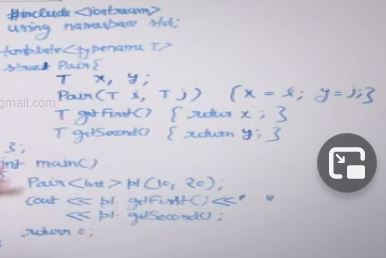 #include <iostream>
using namespace std;
template<typename T>
struct Pair{
T x, y;
Pair(T i, T j) {x = i; y = j;}
T getFirst() { return x ; }
T getSecond() { return y; }
};
gmail.com
int main()
{
Pair<int> p1(10, 20);
cout << p1. getFirst() << " "
<< p1. getSecond();
return 0;